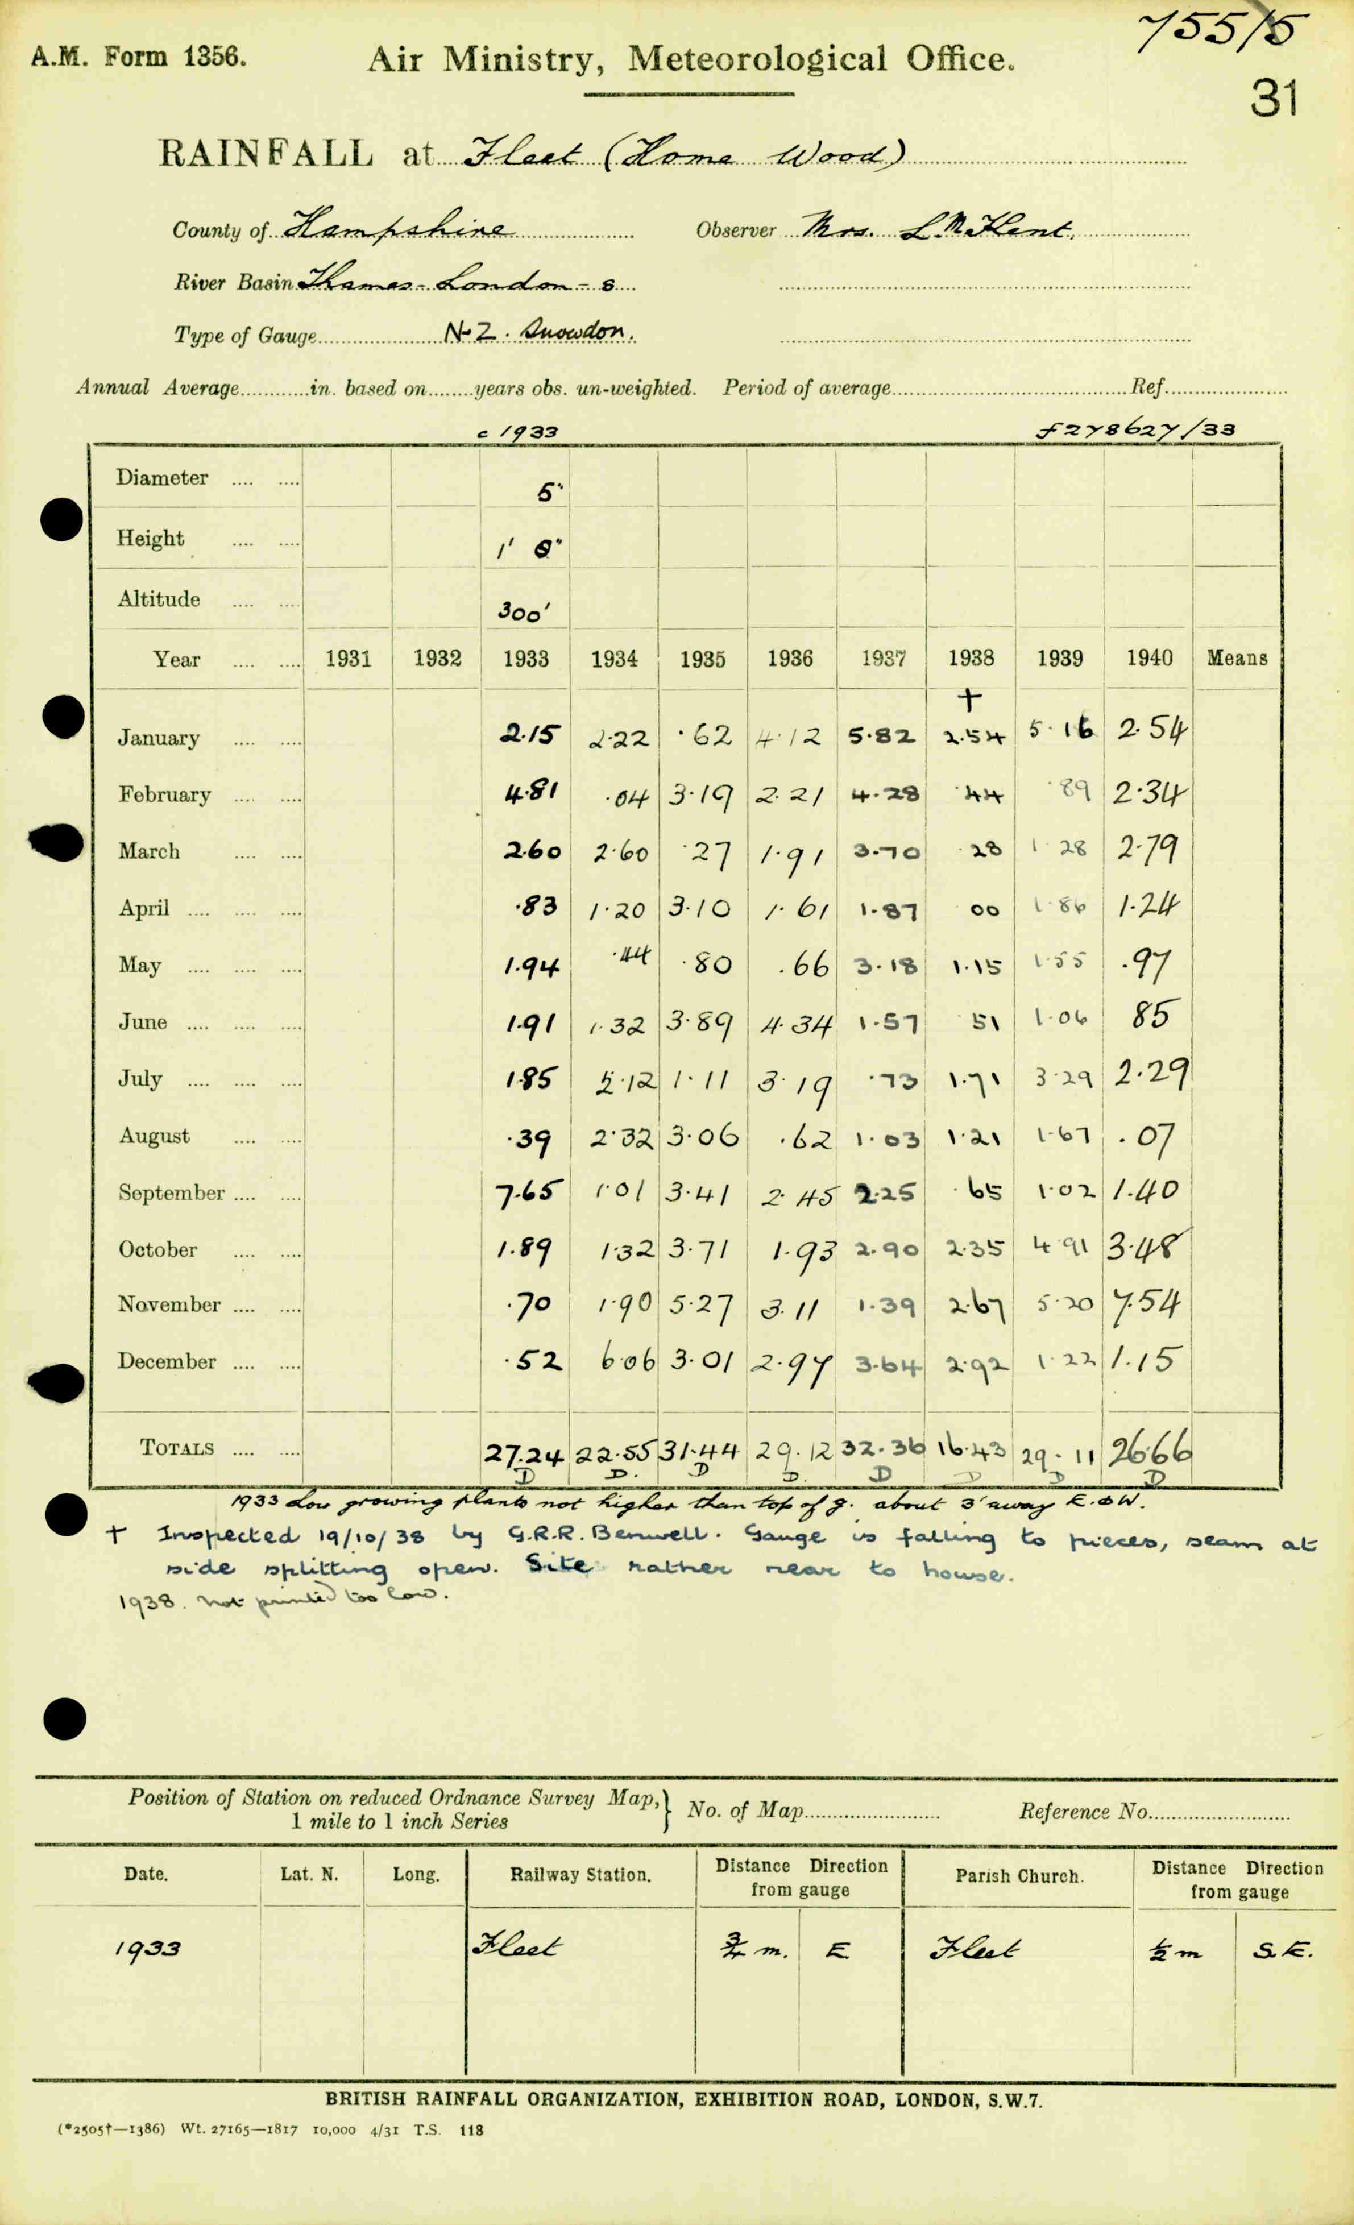 755/5
A.M. Form 1356. Air Ministry, Meteorological Office.
31
RAINFALL at Fleet (Home Wood)
County of Hampshire Observer Mrs. L. M. Kent.
River Basin Thames - London - s
Type of Gauge N-Z. Snowdon.
Annual Average............in. based on........years obs. un-weighted. Period of average............Ref............
c 1933 f278627/33
Diameter .... .... 5"
Height .... .... 1' 0"
Altitude .... .... 300'
Year .... .... 1931 1932 1933 1934 1935 1936 1937 1938 1939 1940 Means
†
January .... .... 2.15 2.22 .62 4.12 5.82 2.54 5.16 2.54
February .... .... 4.81 .04 3.19 2.21 4.28 .44 .89 2.34
March .... .... 2.60 2.60 .27 1.91 3.70 .28 1.28 2.79
April .... .... .... .83 1.20 3.10 1.61 1.87 00 1.86 1.24
May .... .... .... 1.94 .44 .80 .66 3.18 1.15 1.55 .97
June .... .... .... 1.91 1.32 3.89 4.34 1.57 51 1.06 85
July .... .... .... 1.85 2.12 1.11 3.19 .73 1.71 3.29 2.29
August .... .... .39 2.32 3.06 .62 1.03 1.21 1.67 .07
September .... .... 7.65 1.01 3.41 2.45 2.25 .65 1.02 1.40
October .... .... 1.89 1.32 3.71 1.93 2.90 2.35 4.91 3.48
November .... .... .70 1.90 5.27 3.11 1.39 2.67 5.20 7.54
December .... .... .52 6.06 3.01 2.97 3.64 2.92 1.22 1.15
TOTALS .... .... 27.24 22.55 31.44 29.12 32.36 16.43 29.11 26.66
D D D D D D D D
1933 Low growing plants not higher than top of g. about 3' away E. & W.
† Inspected 19/10/38 by G.R.R. Benwell. Gauge is falling to pieces, seam at
side splitting open. Site rather near to house.
1938. not printed too low.
Position of Station on reduced Ordnance Survey Map, } No. of Map............ Reference No............
1 mile to 1 inch Series
Date. Lat. N. Long. Railway Station. Distance Direction from gauge Parish Church. Distance Direction from gauge
1933 Fleet 3/4 m. E Fleet 1/2 m S.E.
BRITISH RAINFALL ORGANIZATION, EXHIBITION ROAD, LONDON, S.W.7.
(*2505†—1386) Wt. 27165—1817 10,000 4/31 T.S. 118